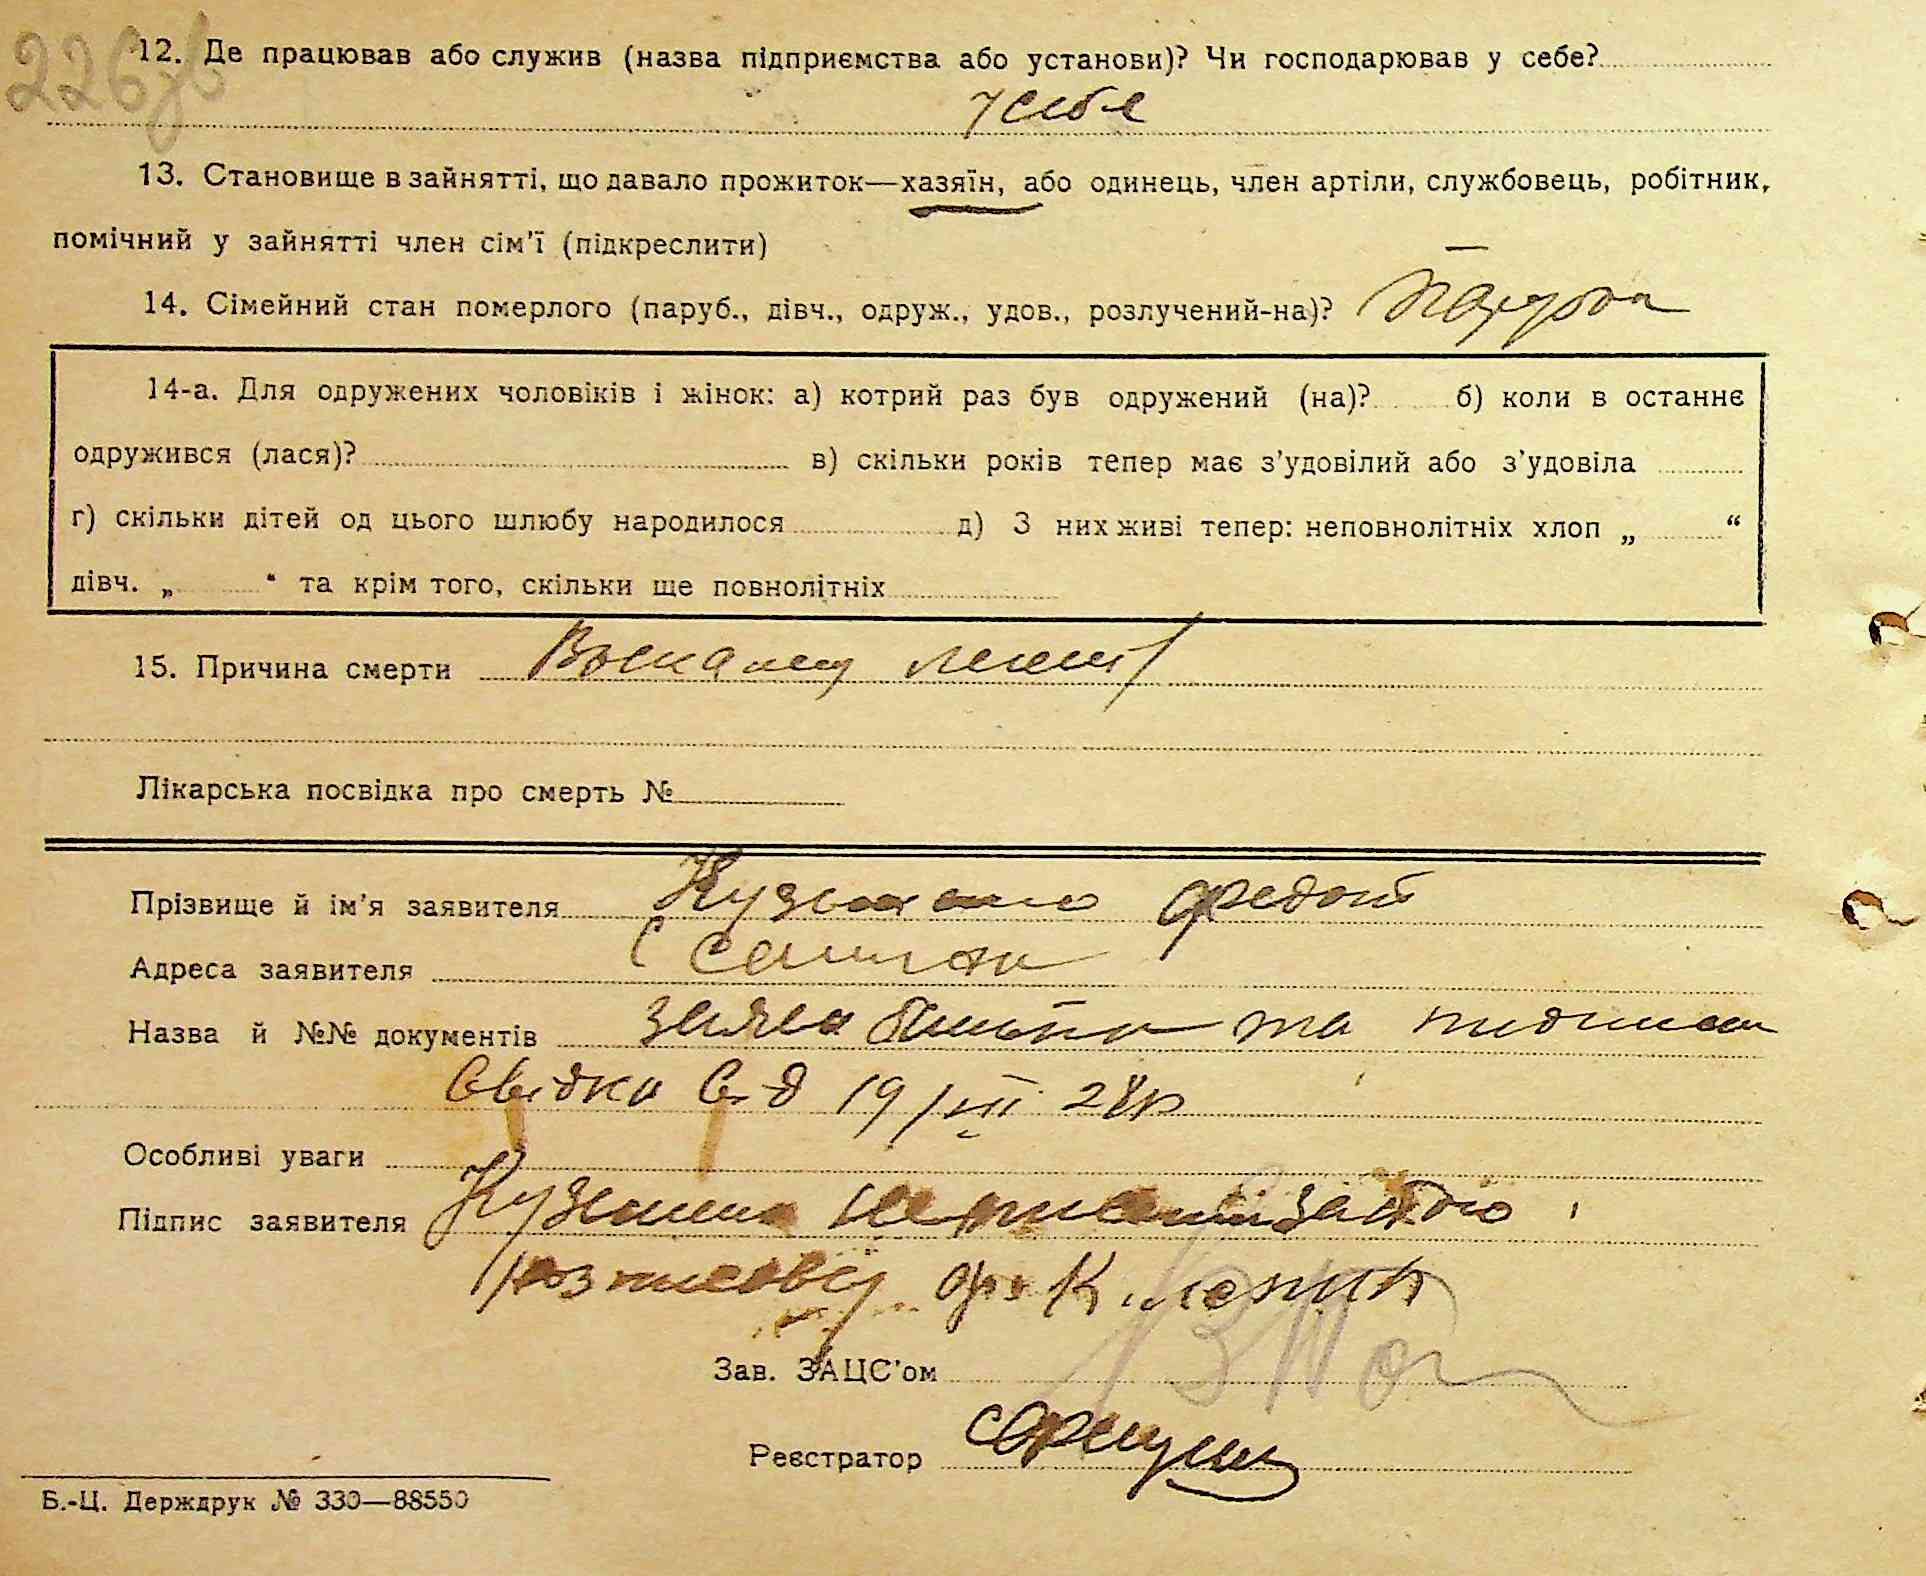 226зв
12. Де працював або служив (назва підприємства або установи)? Чи господарював у себе?
у себе
13. Становище в зайнятті, що давало прожиток—хазяїн, або одинець, член артіли, службовець, робітник,
помічний у зайнятті член сім'ї (підкреслити)
14. Сімейний стан померлого (паруб., дівч., одруж., удов., розлучений-на)?
14-а. Для одружених чоловіків і жінок: а) котрий раз був одружений (на)? б) коли в останнє
одружився (лася)? в) скільки років тепер має з'удовілий або з'удовіла
г) скільки дітей од цього шлюбу народилося д) З них живі тепер: неповнолітніх хлоп „ “
дівч. „ “ та крім того, скільки ще повнолітніх
15. Причина смерти
Лікарська посвідка про смерть №
Прізвище й ім'я заявителя Кузьменко Федот
Адреса заявителя
Назва й №№ документів заява та
свідка від 19/VIII 28р
Особливі уваги
Підпис заявителя
Зав. ЗАЦС'ом
Реєстратор
Б.-Ц. Держдрук № 330—88550